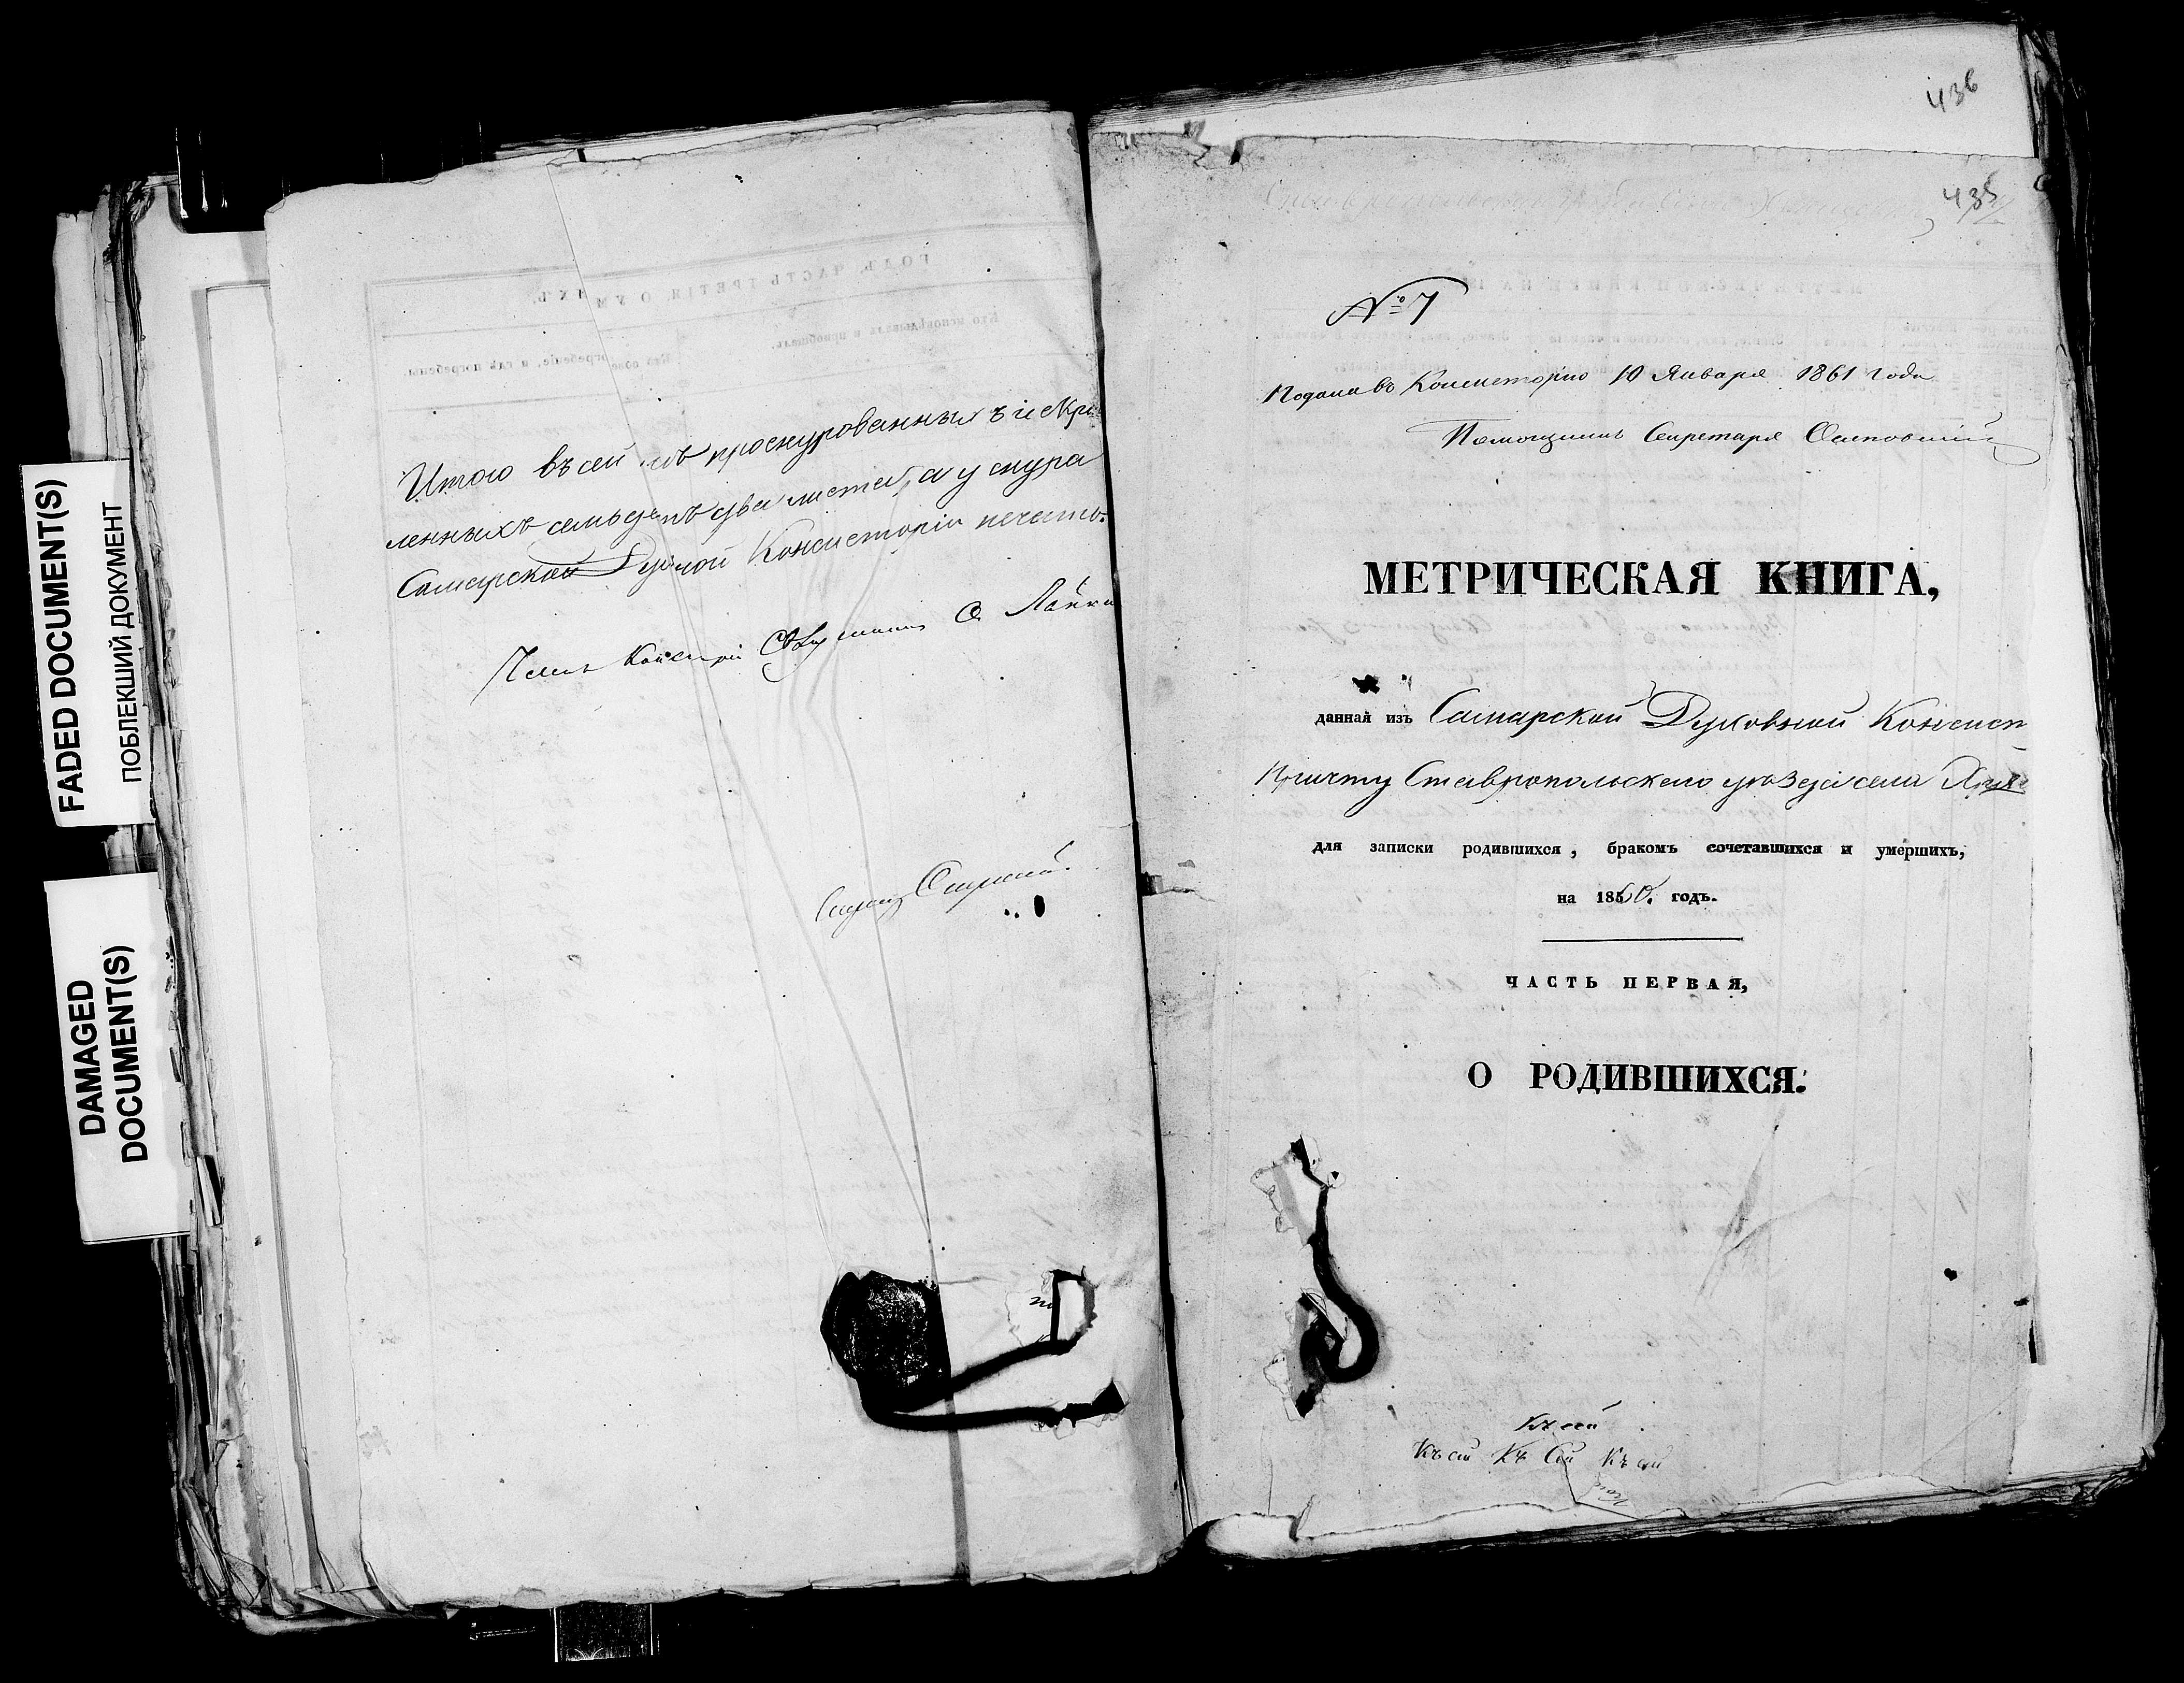 FADED DOCUMENT(S)
ПОБЛЕКШИЙ ДОКУМЕНТ
DAMAGED
DOCUMENT(S)
Итого въ сей прошнурованныхъ и скрѣ
ленныхъ семьдесятъ два листа, а у шнура
Самарской Духовной Консисторіи печать.
Членъ Консисторіи Священникъ
Секретарь
436
435
№ 7
Подана въ Консисторію 10 Января 1861 года
Помощникъ Секретаря Осиповскій
МЕТРИЧЕСКАЯ КНИГА,
данная изъ Самарской Духовной Консист
Причту Ставропольскаго уѣзда села
для записки родившихся, бракомъ сочетавшихся и умершихъ,
на 1860. годъ.
ЧАСТЬ ПЕРВАЯ,
О РОДИВШИХСЯ.
Къ сей
Къ сей Къ Сей Къ сей